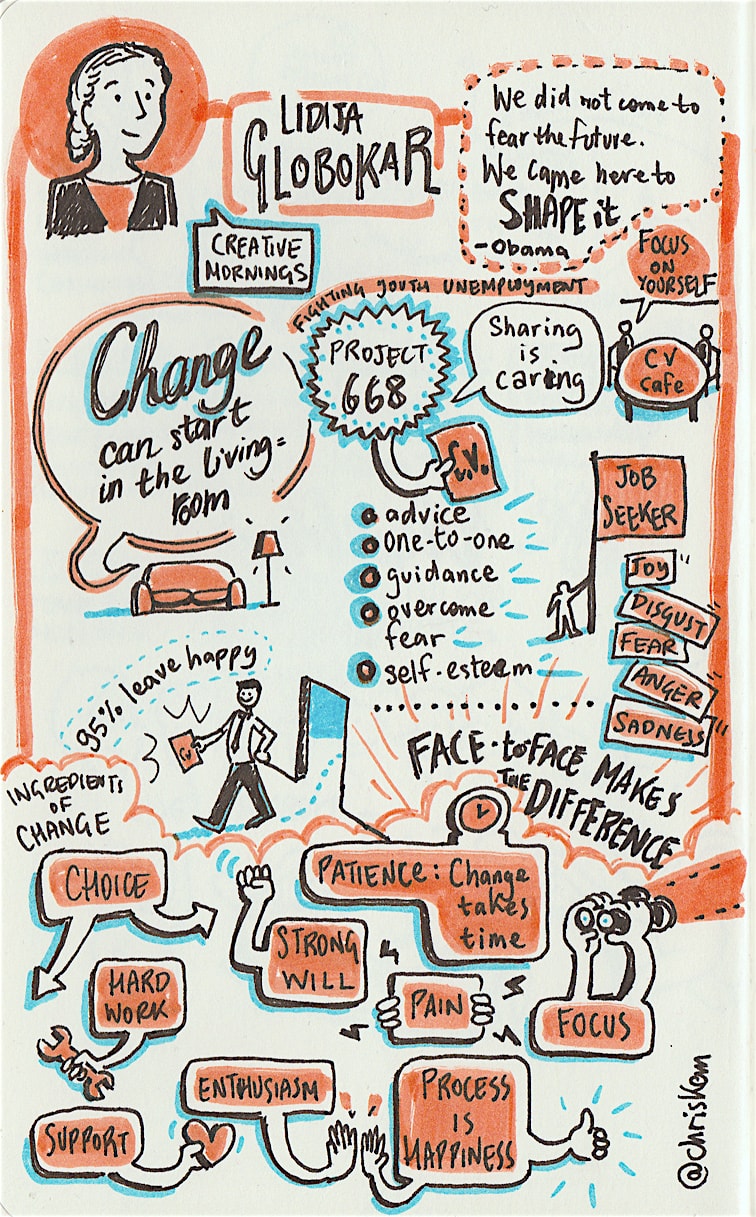 LIDIJA
GLOBOKAR
We did not come to
fear the future.
We came here to
SHAPE it
-Obama
CREATIVE
MORNINGS
FOCUS
ON
YOURSELF
FIGHTING YOUTH UNEMPLOYMENT
Change
can start
in the living=
room
PROJECT
668
Sharing
is
caring
CV
cafe
C.V.
advice
one-to-one
guidance
overcome
fear
self-esteem
JOB
SEEKER
JOY
DISGUST
FEAR
ANGER
SADNESS
95% leave happy
CV
FACE-to-FACE MAKES
THE DIFFERENCE
INGREDIENTS
OF
CHANGE
CHOICE
PATIENCE: Change
takes
time
STRONG
WILL
HARD
WORK
PAIN
FOCUS
ENTHUSIASM
PROCESS
IS
HAPPINESS
SUPPORT
@chrisKom